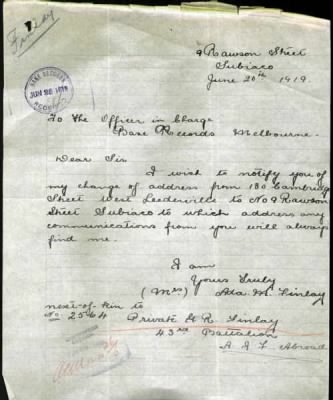 Finlay
9 Rawson Street
Subiaco
June 20th 1919.
BASE RECORDS
To the Officer in Charge
Base Records Melbourne.
Dear Sir
I wish to notify you of
my change of address from 130 Cambridge
Street West Leederville to No 9 Rawson
Street Subiaco to which address any
communications from you will always
find me.
I am
Yours Truly
(Mrs) Ada M. Finlay
next-of-kin to
No 2564 Private H R. Finlay
43rd Battalion
A I F Abroad